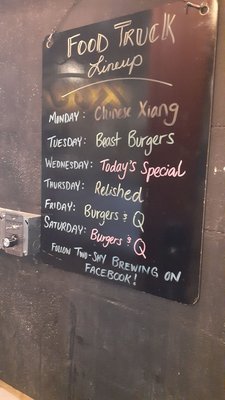 FOOD TRUCK
Lineup
MONDAY: Chinese Xiang
TUESDAY: Beast Burgers
WEDNESDAY: Today's Special
THURSDAY: Relished
FRIDAY: Burgers & Q
SATURDAY: Burgers & Q
FOLLOW TWO-SHY BREWING ON
FACEBOOK!